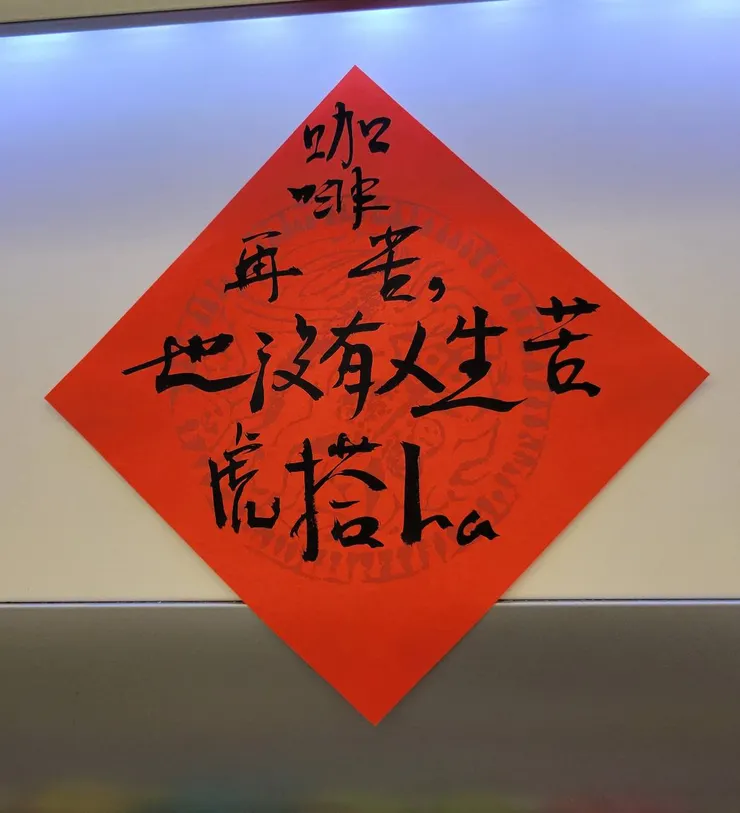 咖
啡
再苦,
也没有人生苦
虎搭ha